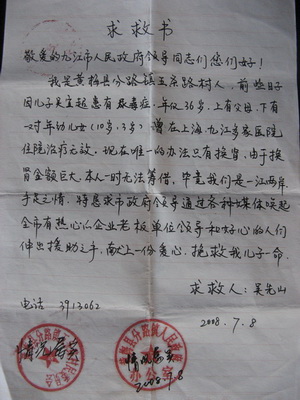 求救书
敬爱的九江市人民政府领导同志们您们好！
我是黄梅县分路镇五房路村人，前些日子
因儿子吴主起患有尿毒症，年仅36岁，上有父母，下有
一对年幼儿女（10岁，3岁）曾在上海，九江多家医院
住院治疗无效，现在唯一的办法只有换肾，由于换
肾金额巨大，本人一时无法筹借，毕竟我们是一江两岸
手足之情，特恳求市政府领导通过各种媒体唤起
全市有热心的企业老板单位领导和好心的人们
伸出援助之手，献上一份爱心，挽救我儿子一命
求救人：吴先山
电话 3913062 2008.7.8
情况属实
情况属实
2008.7.8
黄梅县分路镇人民政府
办公室